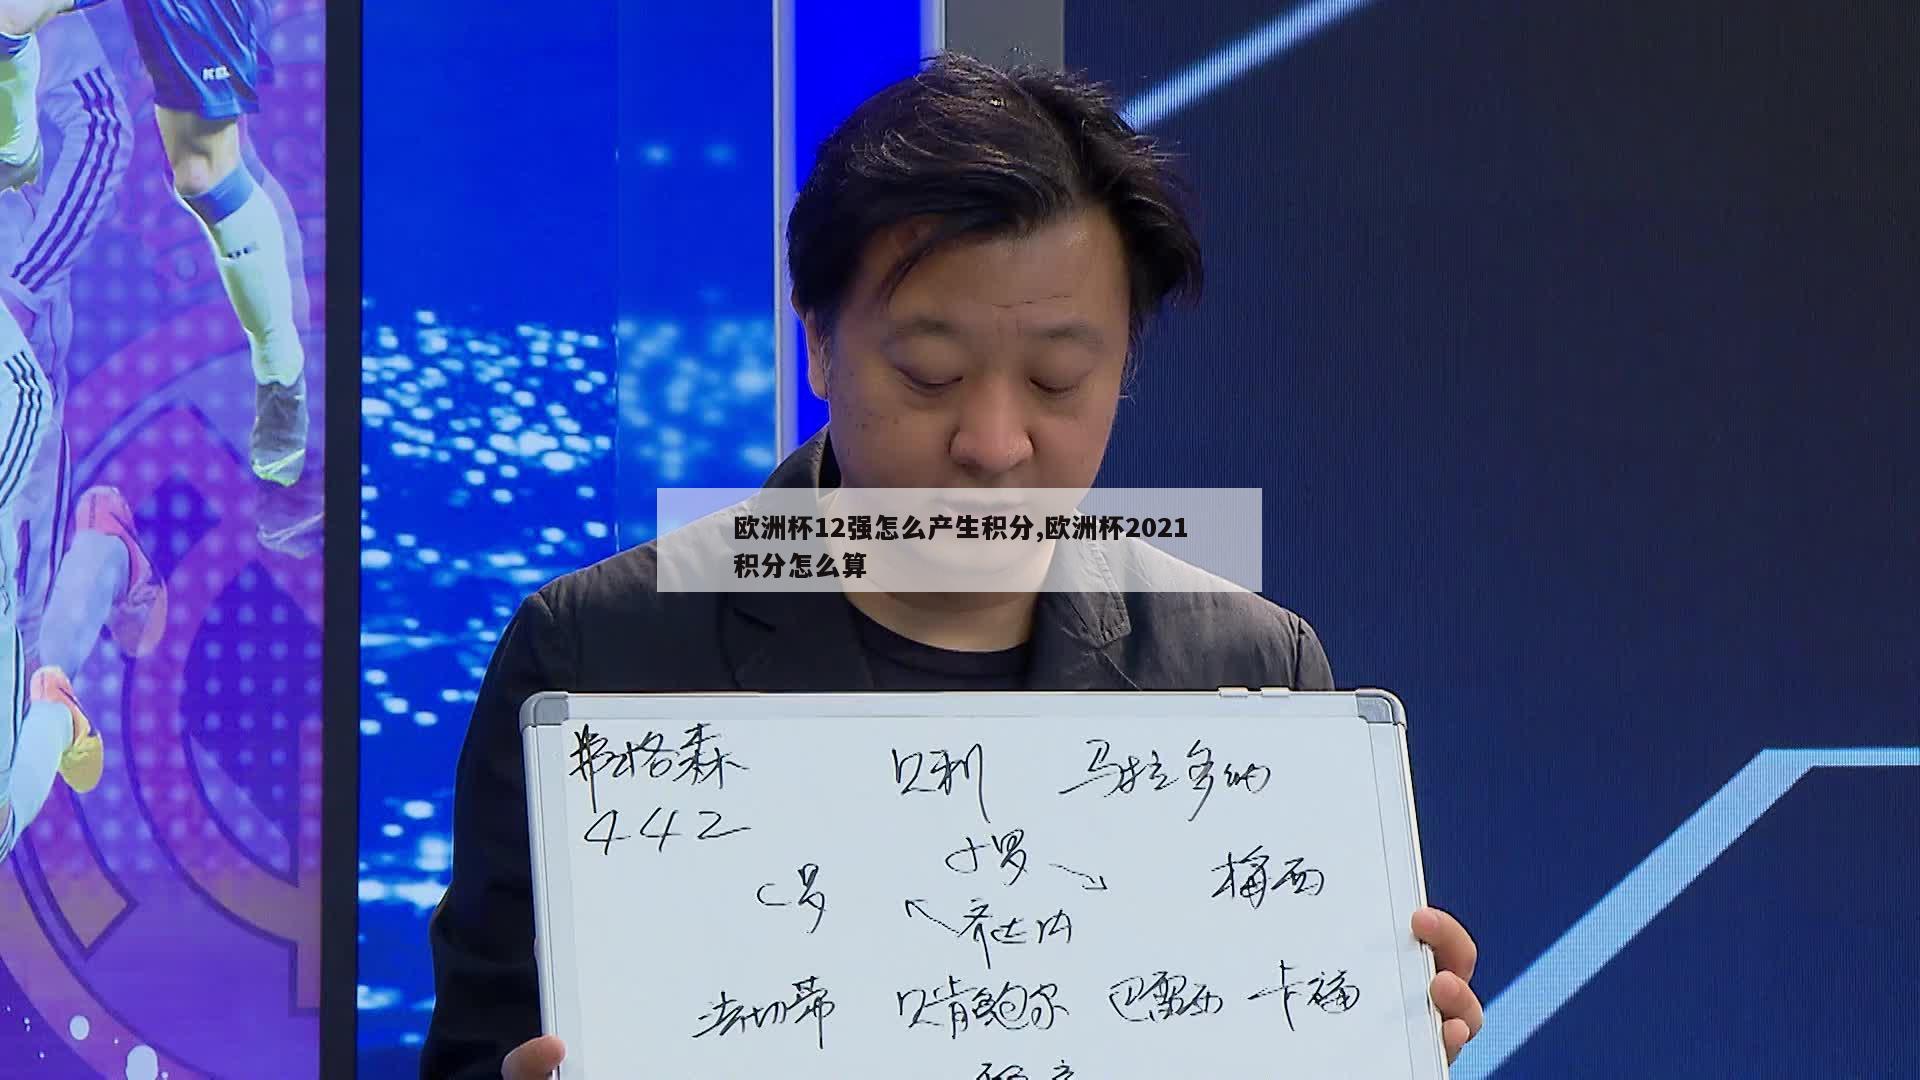 KEL
欧洲杯12强怎么产生积分,欧洲杯2021
积分怎么算
弗格森 贝利 马拉多纳
442
小罗
C罗 梅西
齐达内
法切蒂 贝肯鲍尔 巴雷西 卡福